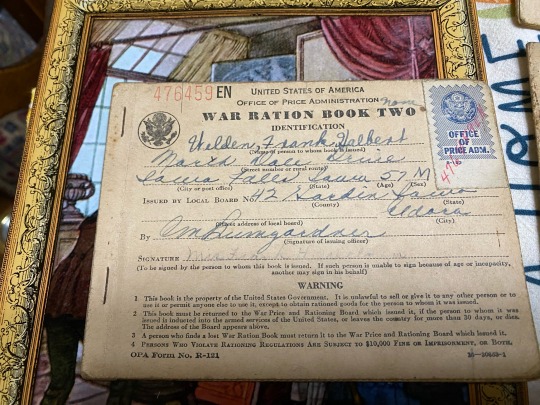 476459 EN UNITED STATES OF AMERICA
OFFICE OF PRICE ADMINISTRATION
WAR RATION BOOK TWO
IDENTIFICATION
OFFICE
OF
PRICE ADM.
Welden, Frank Halbert
(Name of person to whom book is issued)
North
(Street number or rural route)
Iowa Falls Iowa 57 M
(City or post office) (State) (Age) (Sex)
ISSUED BY LOCAL BOARD NO. 42 Hardin Iowa
(County) (State)
Eldora
(Street address of local board) (City)
By
(Signature of issuing officer)
SIGNATURE
(To be signed by the person to whom this book is issued. If such person is unable to sign because of age or incapacity,
another may sign in his behalf)
WARNING
1 This book is the property of the United States Government. It is unlawful to sell or give it to any other person or to
use it or permit anyone else to use it, except to obtain rationed goods for the person to whom it was issued.
2 This book must be returned to the War Price and Rationing Board which issued it, if the person to whom it was
issued is inducted into the armed services of the United States, or leaves the country for more than 30 days, or dies.
The address of the Board appears above.
3 A person who finds a lost War Ration Book must return it to the War Price and Rationing Board which issued it.
4 PERSONS WHO VIOLATE RATIONING REGULATIONS ARE SUBJECT TO $10,000 FINE OR IMPRISONMENT, OR BOTH.
OPA Form No. R-121